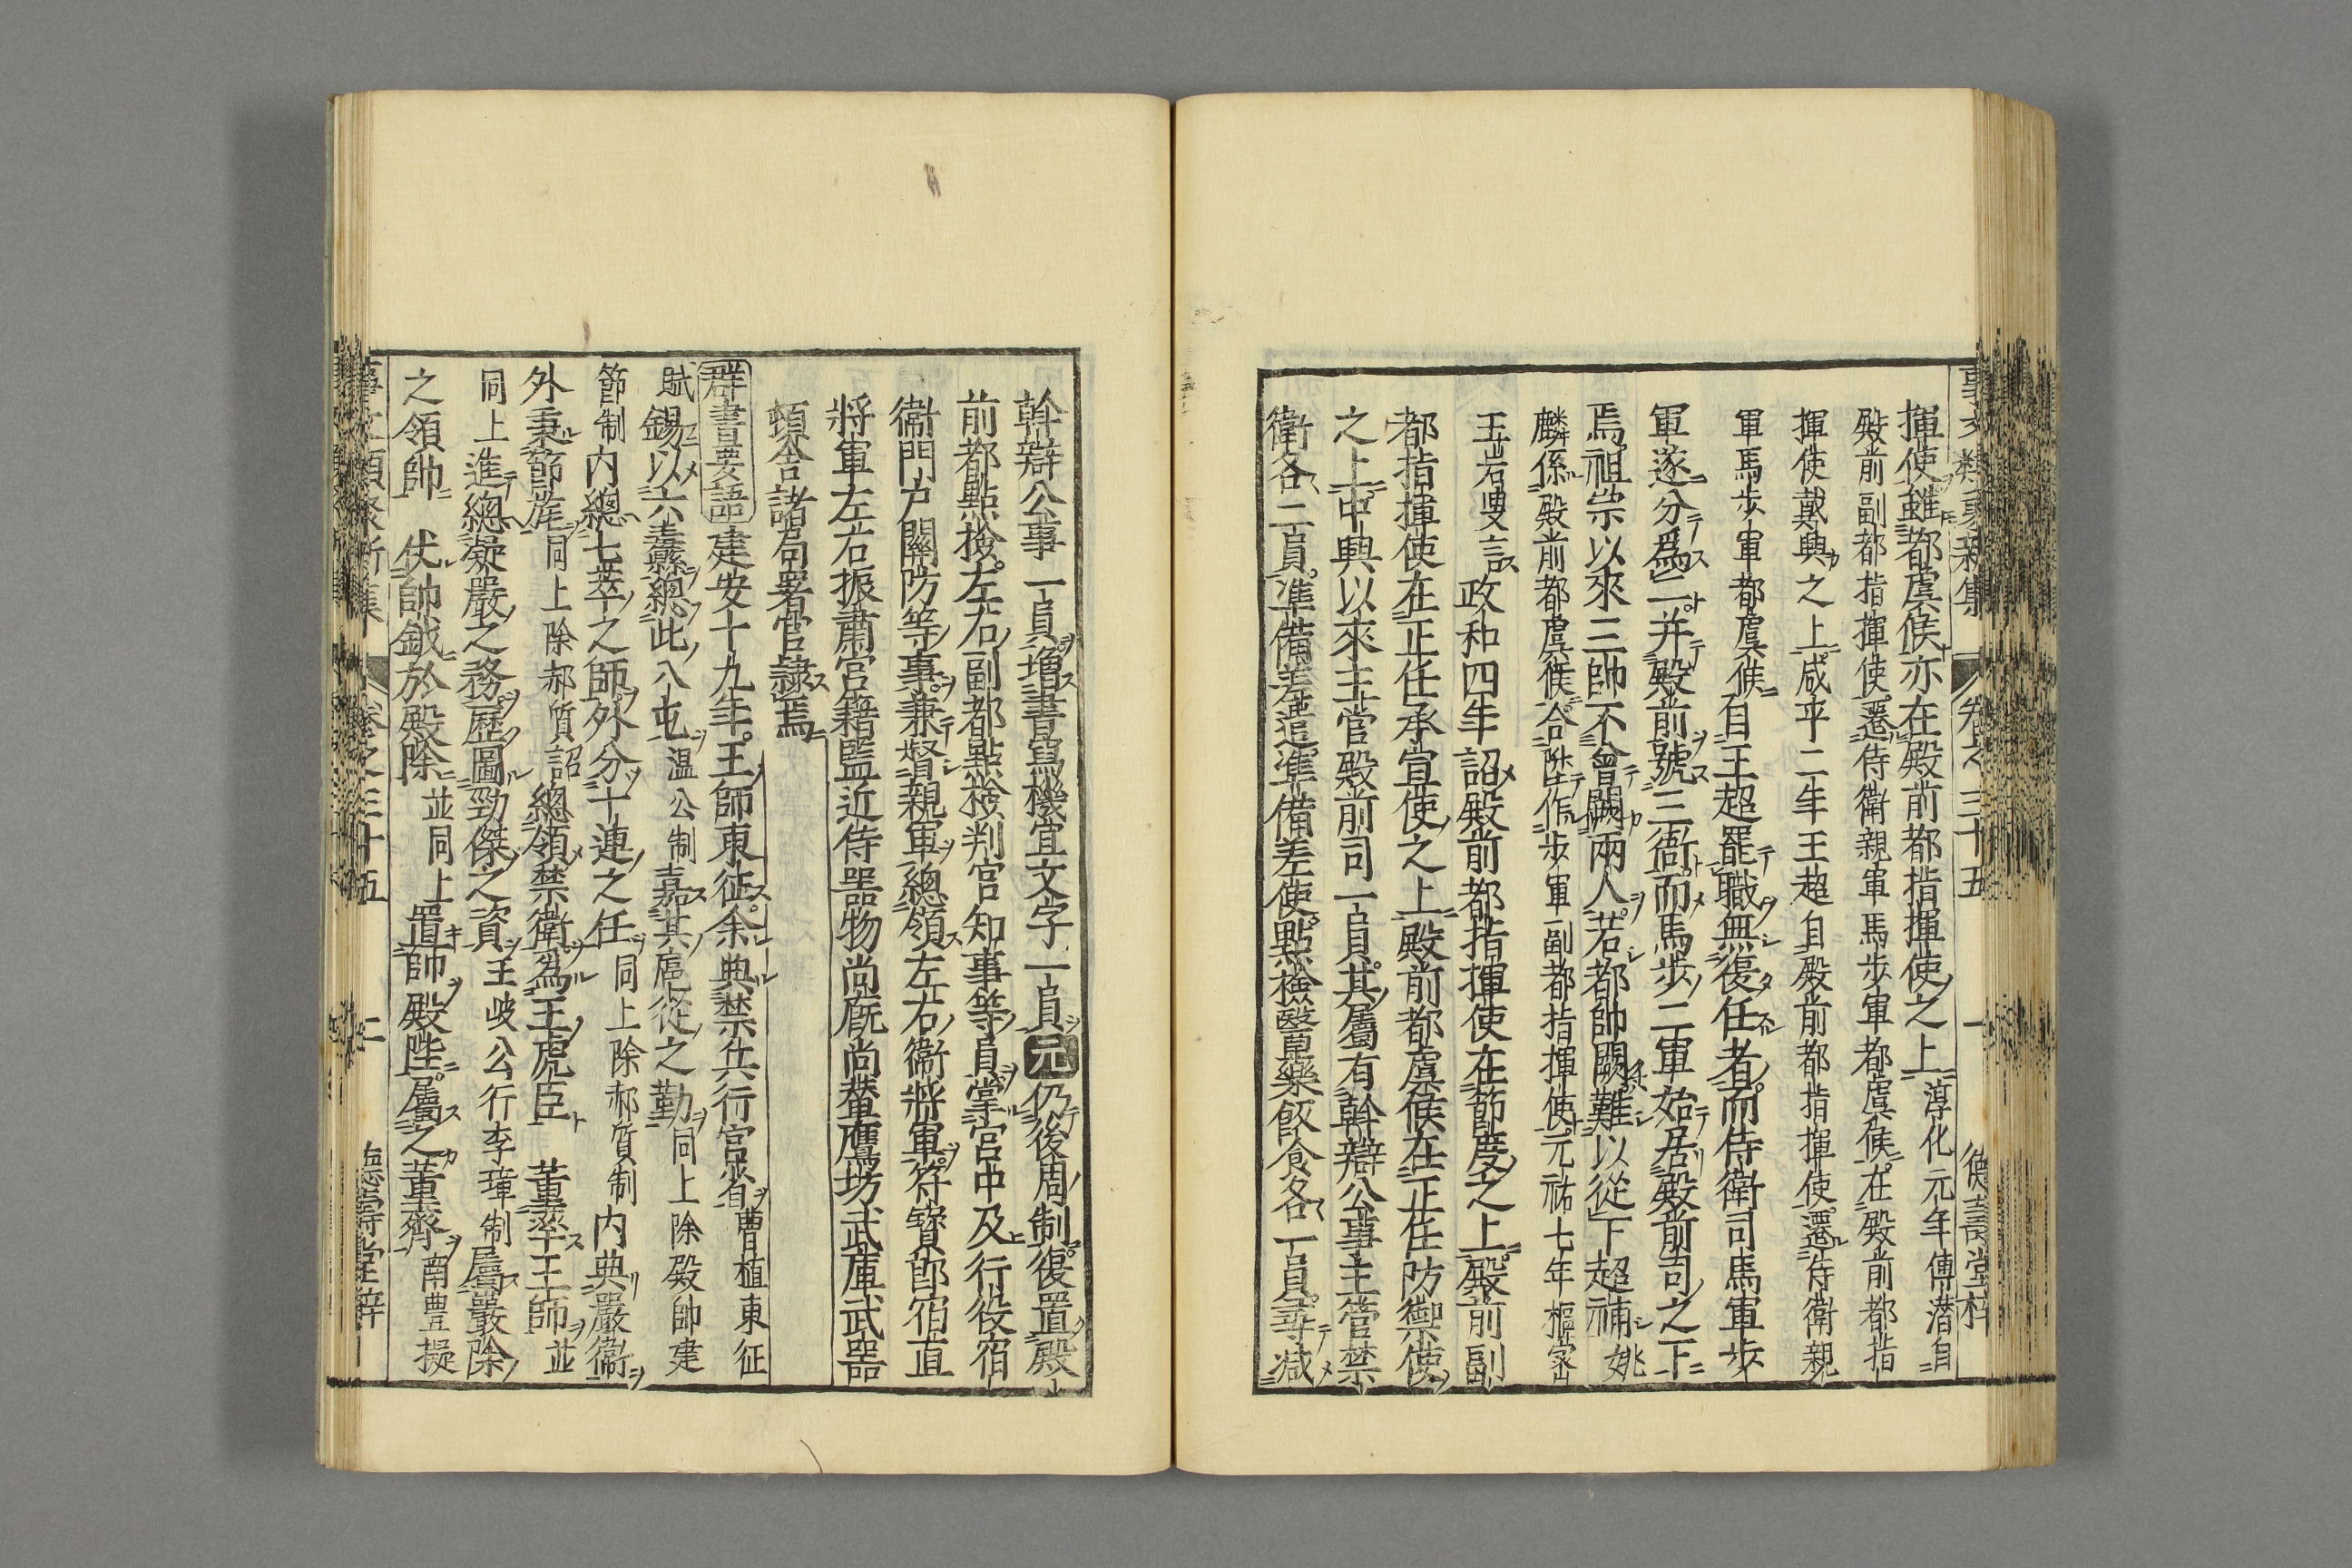 事文類聚新集 卷之三十五 一 德壽堂梓
揮使雖都虞候亦在殿前都指揮使之上淳化元年傅潛自
殿前副都指揮使遷侍衛親軍馬步軍都虞候在殿前都指
揮使戴興之上咸平二年王超自殿前都指揮使遷侍衛親
軍馬步軍都虞候自王超罷職無復任者而侍衛司馬軍步
軍遂分爲二并殿前號三衙而馬步二軍始居殿前司之下
焉祖宗以來三帥不曾闕兩人若都帥闕難以從下超補姚
麟係殿前都虞候合陞作步軍副都指揮使元祐七年樞密
王岩叟言政和四年詔殿前都指揮使在節度之上殿前副
都指揮使在正任承宣使之上殿前都虞候在正任防禦使
之上中興以來主管殿前司一員其屬有幹辯公事主管禁
衛各二員準備差遣準備差使點檢醫藥飯食各一員尋減
幹辯公事一員增書寫機宜文字一員元仍後周制復置殿
前都點檢左右副都點檢判官知事等員掌宮中及行役宿
衞門户關防等事兼督親軍總領左右衛將軍符寶郎宿直
將軍左右振肅宮籍監近侍器物尚廐尚輦鷹坊武庫武器
頓舍諸局署官隷焉
群書要語建安十九年王師東征余典禁兵行宮省曹植東征
賦錫以六纛總此八屯温公制嘉其扈從之勤同上除殿帥建
節制内總七萃之師外分十連之任同上除郝質制内典嚴衞
外秉節旄同上除郝質詔總領禁衛爲王虎臣 董率王師並
同上進總凝嚴之務歷圖勁傑之資王岐公行李璋制屬嚴除
之領帥 伏帥鉞於殿除並同上置帥殿陛屬之董齊南豊擬
事文類聚新集 卷之三十五 二 德壽堂梓